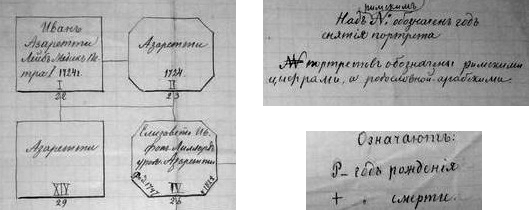 Иванъ
Азаретти
Лейбъ Медикъ Пе-
тра I 1724 г.
I
22
Азаретти
1724
II
23
Азаретти
XIV
29
Елизавета Ив.
фонъ
урож. Азаретти
Р. 1747
IV
26
римскимъ
Надъ № обозначенъ годъ
снятія портрета
№ портретовъ обозначены римскими
цифрами, а родословной арабскими.
Означаютъ:
Р – годъ рожденія
+ „ смерти.